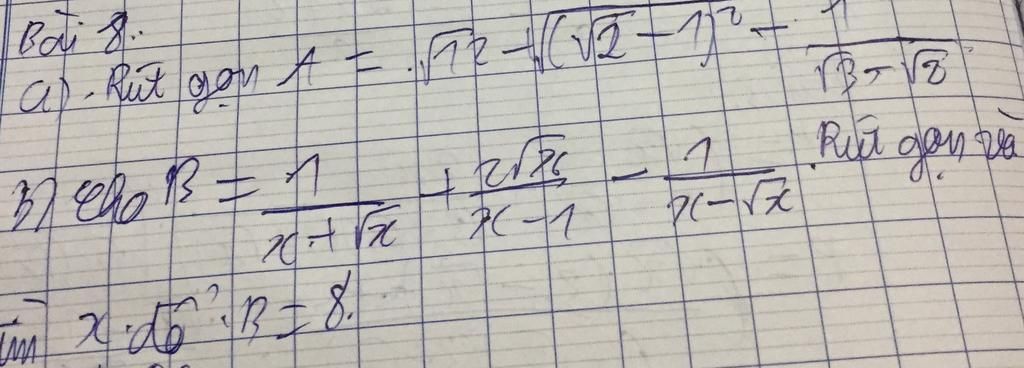 Bài 8:
a). Rút gọn A = √12 + √((√2 - 1)² - 1/(√3 - √2)
b) cho B = 1/(x + √x) + 2√x/(x - 1) - 1/(x - √x) . Rút gọn và
tìm x để B = 8.